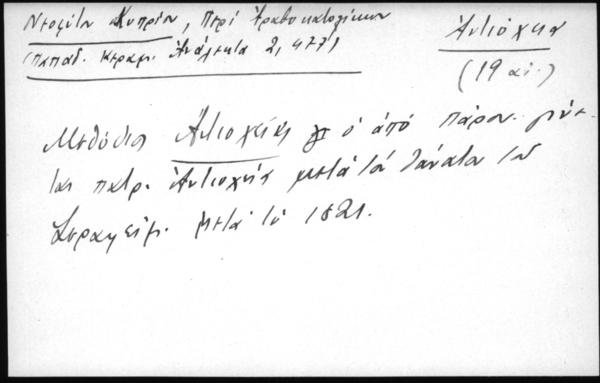 Νεοφύτου Κυπρίου, Περί Αραβοκαθολίκων
(Παπαδ. Κεραμ. Ανάλεκτα 2, 477)
Ἀντιόχεια
(19 αἰ.)
Μεθόδιος Ἀντιοχείας ὁ ἀπό Πάρου. γίνε-
ται πατρ. Ἀντιοχείας μετά τόν θάνατον τοῦ
Σεραφείμ. μετά τό 1821.